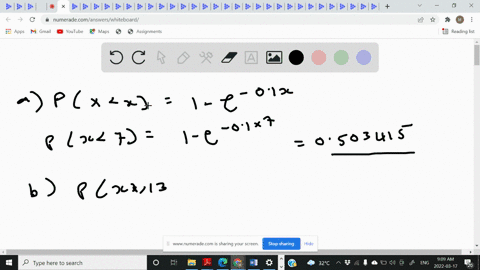 numerade.com/answers/whiteboard/
Apps
Gmail
YouTube
Maps
Assignments
Reading list
a) P(x<x) = 1 - e^-0.1x
P(x<7) = 1 - e^-0.1x7 = 0.503415
b) P(x
www.numerade.com is sharing your screen.
Stop sharing
Hide
Type here to search
32°C
ENG
9:09 AM
2022-03-17